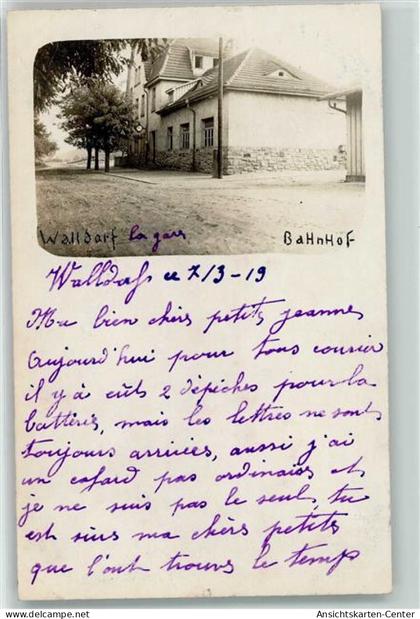 Walldorf la gare BaHnHof
Walldorf le 7/3-19
Ma bien chèrs petits jeanne
Aujourd'hui pour tous courier
il y à eûts 2 dépèches pour la
battéris, mais les lettres ne sont
toujours arrivées, aussi j'ai
un cafard pas ordinaiōs et
je ne suis pas le seul, tu
est sûrs ma chèrs petits
que l'ont trouvs le temps
© Ansichtskarten-Center